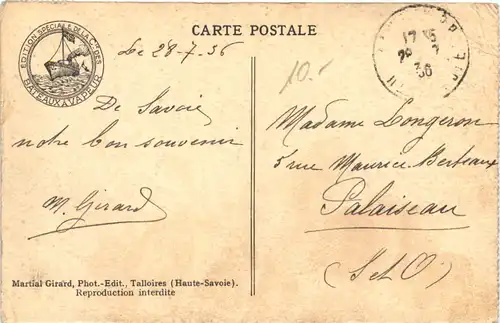 CARTE POSTALE
EDITION SPÉCIALE DE LA
BATEAUX A VAPEUR
Le 28-7-36
10.-
17 35
36
De Savoie
notre bon souvenir
M. Girard
Madame Longeron
5 rue Maurice Berteaux
Palaiseau
(S et O)
Martial Girard, Phot.-Edit., Talloires (Haute-Savoie).
Reproduction interdite